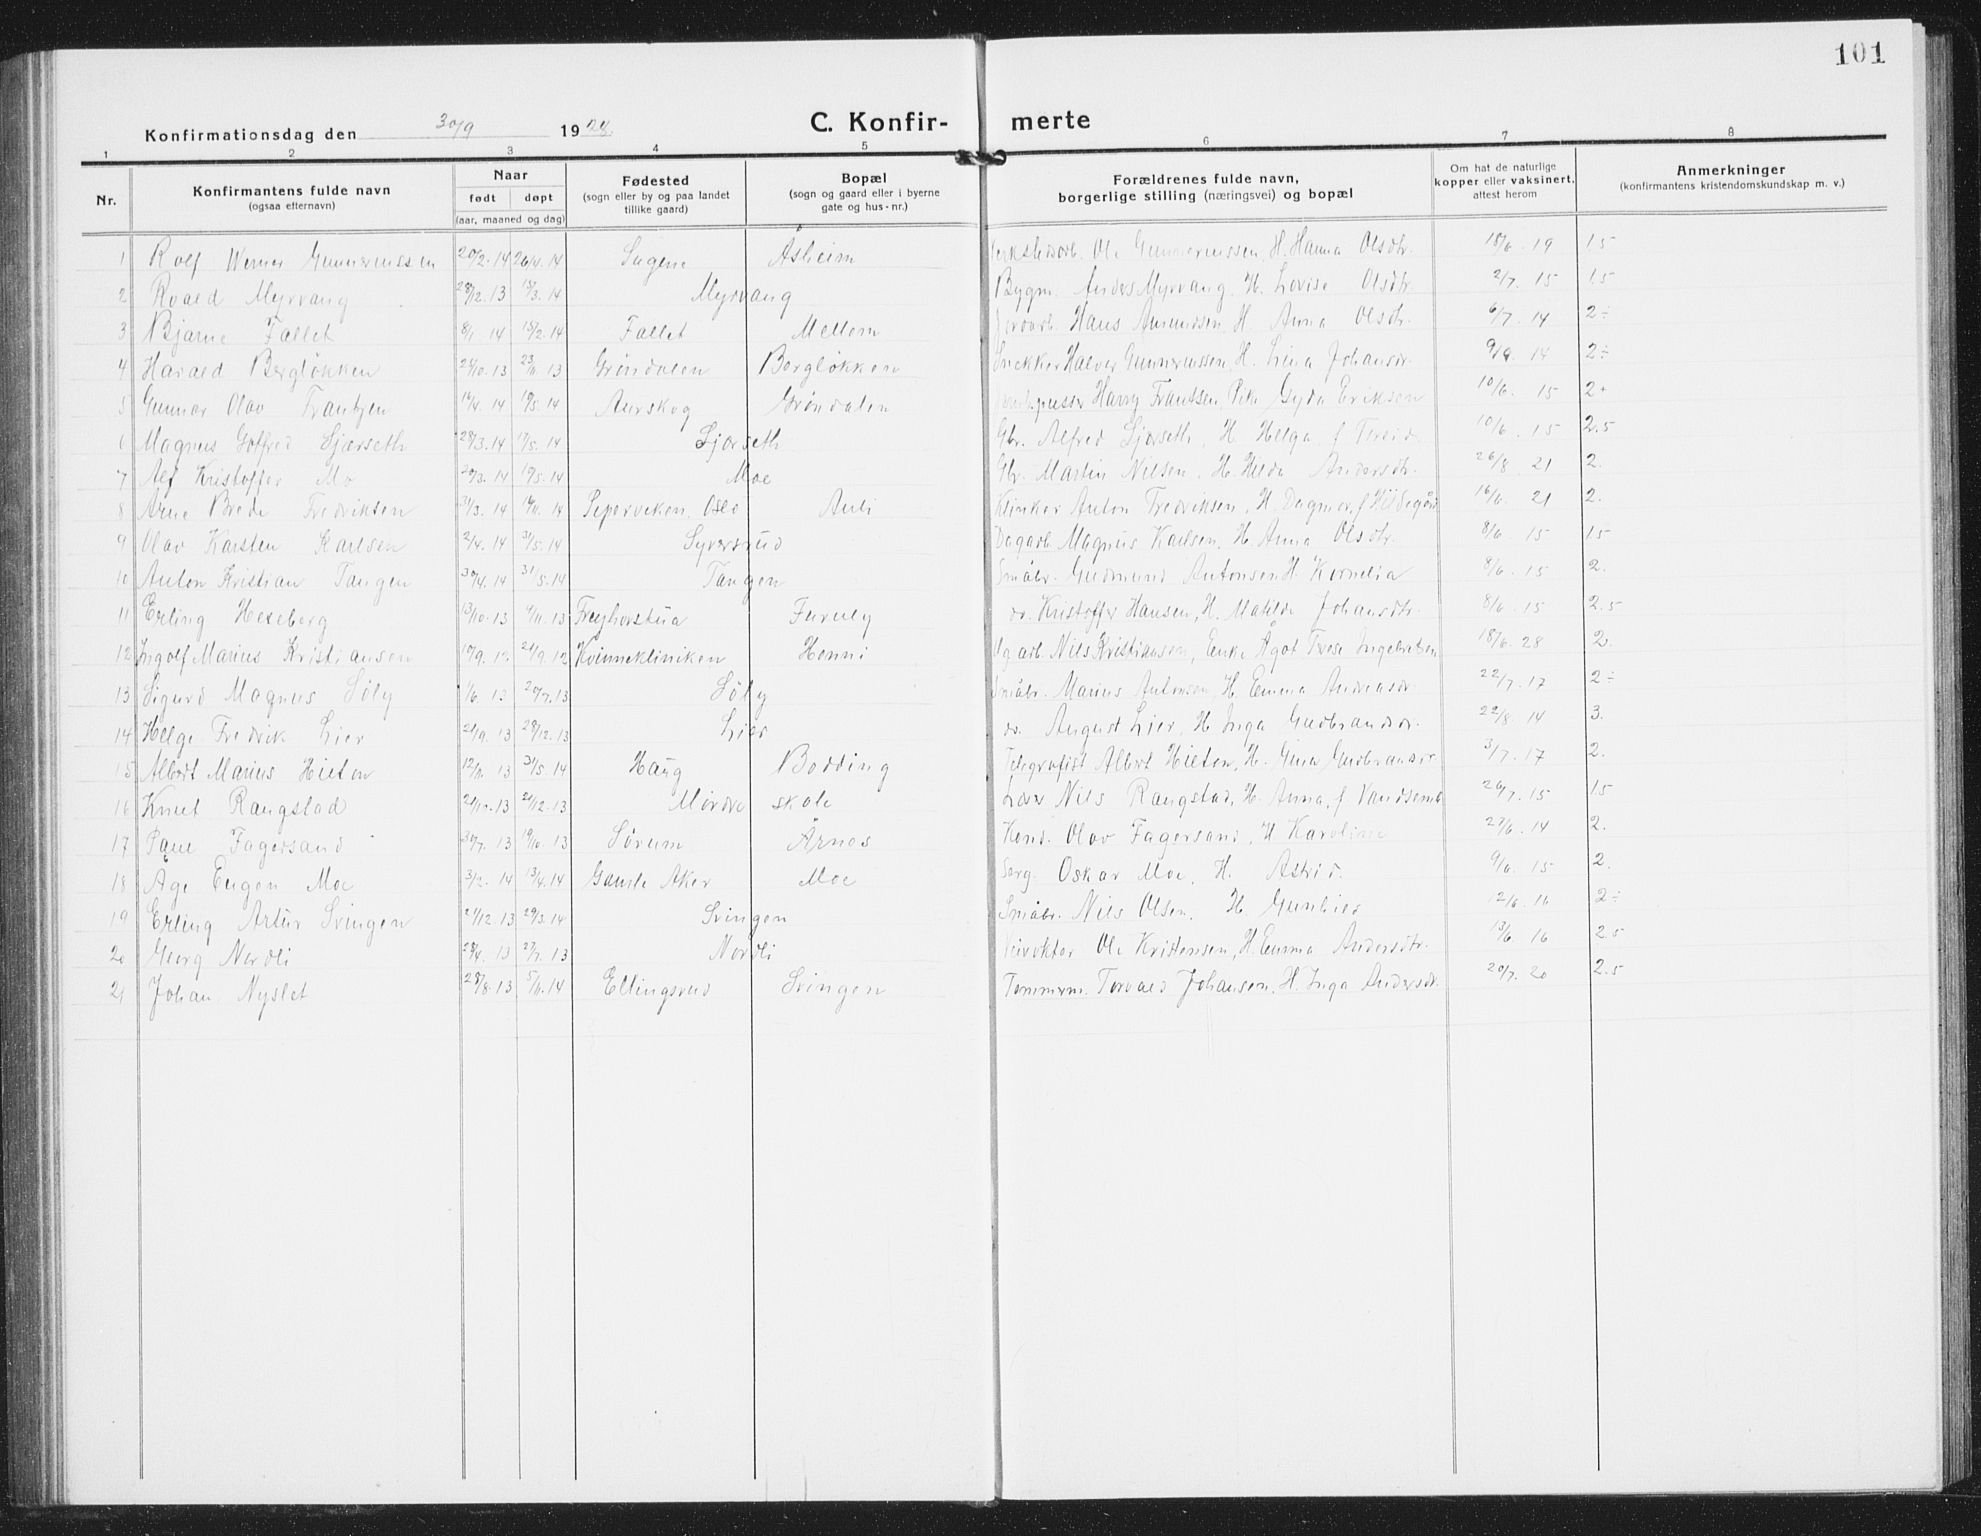 101
Konfirmationsdag den 30/9 1928.
C. Konfir- merte
1 2 3 4 5 6 7 8
Nr.
Konfirmantens fulde navn
(ogsaa efternavn)
Naar
født døpt
(aar, maaned og dag)
Fødested
(sogn eller by og paa landet
tillike gaard)
Bopæl
(sogn og gaard eller i byerne
gate og hus-nr.)
Forældrenes fulde navn,
borgerlige stilling (næringsvei) og bopæl
Om hat de naturlige
kopper eller vaksinert,
attest herom
Anmerkninger
(konfirmantens kristendomskundskap m. v.)
1 Rolf Werner Gunnerussen 20/2. 14 26/4. 14 Sagene Åsheim Ole Gunnerussen H. Hanna Olsdtr. 18/6. 19 1.5
2 Roald Myrvang 28/12. 13 15/3. 14 Myrvang Bygm. Anders Myrvang. H. Lovise Olsdtr. 2/7. 15 1.5
3 Bjarne Fallet 8/1. 14 15/2. 14 Fallet Mellom Hans Amundsen H. Anna Olsdtr. 6/7. 14 2÷
4 Harald Bergløkken 13 23/11. 13 Grøndalen Bergløkken Snekker Halvor Gunnerussen, H. Lina Johansdr. 14 2÷
5 Gunnar Olav Frantzen 14/4. 14 14 Aurskog Grøndalen Harry Frantsen, Pike Gyda Eriksen 10/6. 15 2+
6 Magnus Gotfred Ljørseth 28/3. 14 17/5. 14 Ljørseth Gbr. Alfred Ljørseth, H. Helga, f. 10/6. 15 2.5
7 Alf Kristoffer Mo 14 14 Moe Gbr. Martin Nilsen. H. Hilda Andersdtr. 26/8. 21 2.
8 Arne Brede Fredriksen 31/3. 14 14 Pipervika. Oslo Auli Klinker Anton Fredriksen, H. Dagmar, f. 16/6. 21 2.
9 Olav Karsten Karlsen 2/4. 14 31/5. 14 Syversrud Dagarb. Magnus Karlsen. H. Anna Olsdtr. 8/6. 15 1.5
10 Anton Kristian Tangen 30/4. 14 31/5. 14 Tangen Småbr. Gudmund Antonsen H. Kornelia 8/6. 15 2.
11 Erling Hexeberg 13/10. 13 13 Furuly do. Kristoffer Hansen, H. Matilde Johansdtr. 8/6. 15 2.5
12 Ingolf Marius Kristiansen 12 12 Kvinneklinikken Henni arb. Nils Kristiansen, Enke Ågot 18/6. 28 2.
13 Sigurd Magnus Søly 1/6. 13 20/7. 13 Søly Småbr. Marius Antonsen, H. Emma Andreasdr. 22/7. 17 2÷
14 Helge Fredrik Lier 13 28/12. 13 Lier do. August Lier, H. Inga Gudbrandsdr. 22/8. 14 3.
15 Albert Marius Hieton 12/11. 13 31/5. 14 Haug Bodding Telegrafist Albert Hieton, H. Gina Gudbrandsdr 3/7. 17 2.
16 Knut Rangstad 13 12. 13 Mørdre skole Lærer Nils Rangstad, H. Anna, f. 26/7. 15 1.5
17 Paul Fagersand 30/7. 13 19/10. 13 Sørum Årnes Kond. Olav Fagersand, H. Karoline 14 2.
18 Åge Eugen Moe 3/2. 14 13/4. 14 Gamle Aker Moe Serg. Oskar Moe, H. Astrid. 9/6. 15 2.
19 Erling Artur Svingen 12. 13 29/3. 14 Svingen Småbr. Nils Olsen, H. 12/6. 16 2÷
20 Georg Nordli 28/4. 13 27/7. 13 Nordli Ole Kristensen, H. Emma Andersdtr. 13/6. 16 2.5
21 Johan Nyslet 28/8. 13 14 Ellingsrud Svingen Tømmerm. Torvald Johansen. H. Inga Andersdr. 20/7. 20 2.5